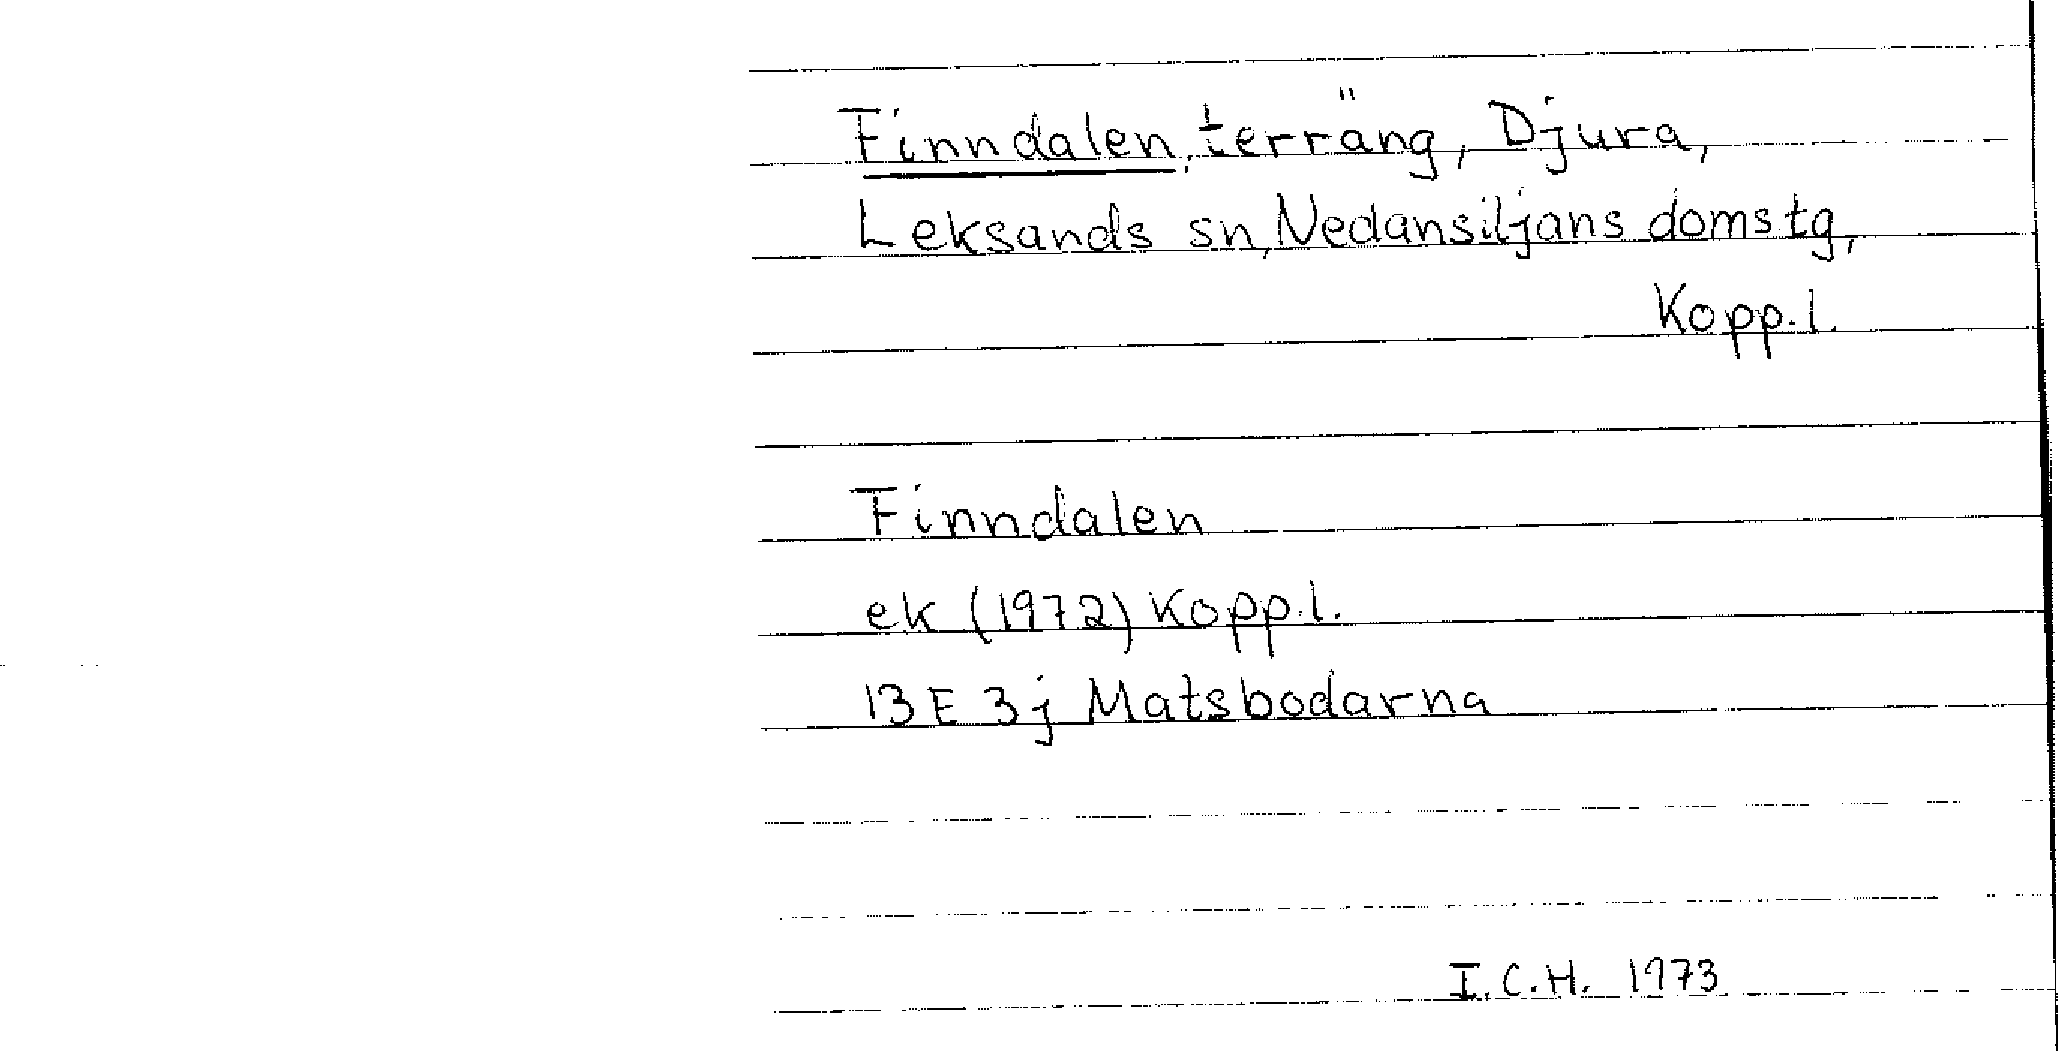 Finndalen, terräng, Djura,
Leksands sn, Nedansiljans domstg,
Kopp.l.
Finndalen
ek (1972) Kopp.l.
13E 3j Matsbodarna
I.C.H. 1973